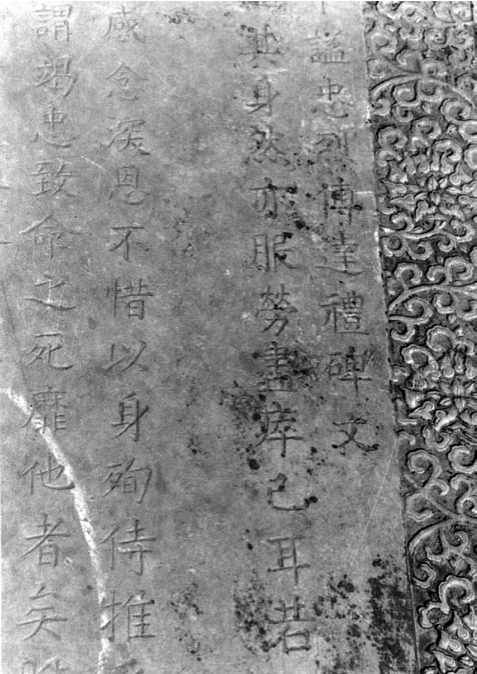 諡忠烈傅達禮碑文
其身然亦服勞盡瘁已耳若
感念矦恩不惜以身殉侍推
謂竭忠致命之死靡他者矣